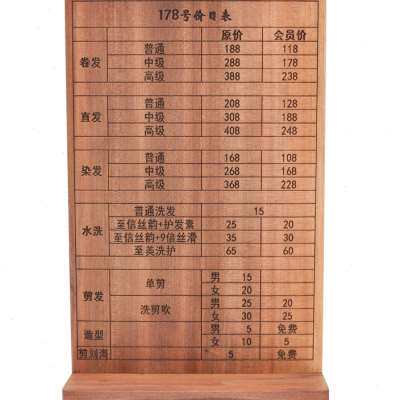 178号价目表
原价 会员价
卷发 普通 188 118
中级 288 178
高级 388 238
直发 普通 208 128
中级 308 188
高级 408 248
染发 普通 168 108
中级 268 168
高级 368 228
水洗 普通洗发 15
至信丝韵+护发素 25 20
至信丝韵+9倍丝滑 35 30
至美洗护 65 60
剪发 单剪 男 15
女 20
洗剪吹 男 25 20
女 30 25
造型 男 5 免费
女 10 5
剪刘海 5 免费